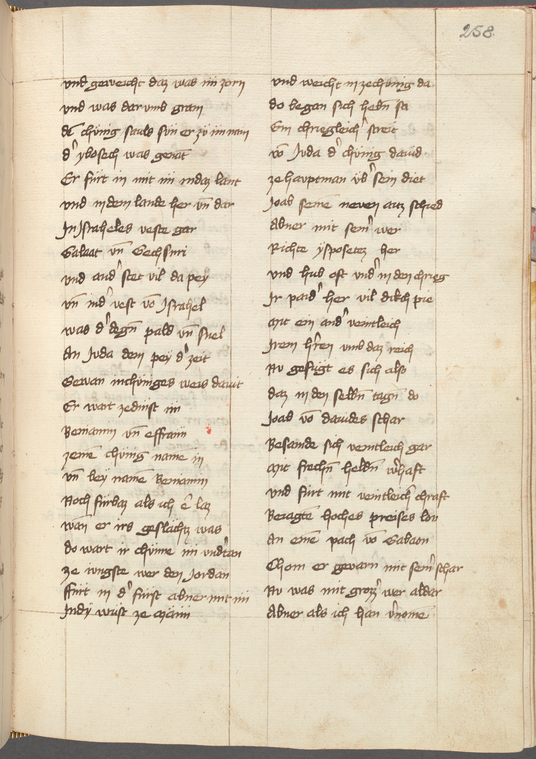 258
und geweicht daz was im zorn
und was darumb gram
d' chünig sauls sun er zü im nam
d' ysbosech was genāt
Er furt in mit im indaz lant
und indem lande her vn̄ dar
In Israheles veste gar
Galaat vn̄ Gechsuri
und and' stet vil da pey
vn̄ ind' vest vō Israhel
was d' degn̄ pald vn̄ snel
An Juda dem pey d' zeit
Gewan in chüniges weis dauit
Er wart ze dinst im
Bemamin vn̄ effraim
zeinē chünig namē in
vn̄ bey namē Bemamin
Noch fürbaz als ich ē laz
wan er irs geslächtz was
do wart ir chünne im undˈtan
ze iungste uber den Jordan
ffurt in d' fürst abner mit im
Indy wüst ze Maim
und weicht in zechünig da
do began sich hebn̄ sa
Ein chriegleich' streit
vō Juda d' chünig dauid
ze hauptman üb' sein diet
Joab seinē neven auz schied
Abner mit sein' wer
Richte ysposetez her
und hub oft und' in den chrieg
Ir paid' her vil dikch pie
Mit ein and' veintleich
Irem hr̄en umb daz reich
Nv gefügt es sich also
daz in den selbn̄ tagn̄ do
Joab vō dauides schar
Besande sich veintleich gar
Mit frechn̄ heldn̄ w'haft
und furt mit veintleich chraft
Beragte hoches preises lon
An einē pach vō Gabaon
Chom er gevarn mit sein' schar
Nv was mit grozz' wer aldar
Abner als ich han v'nomē